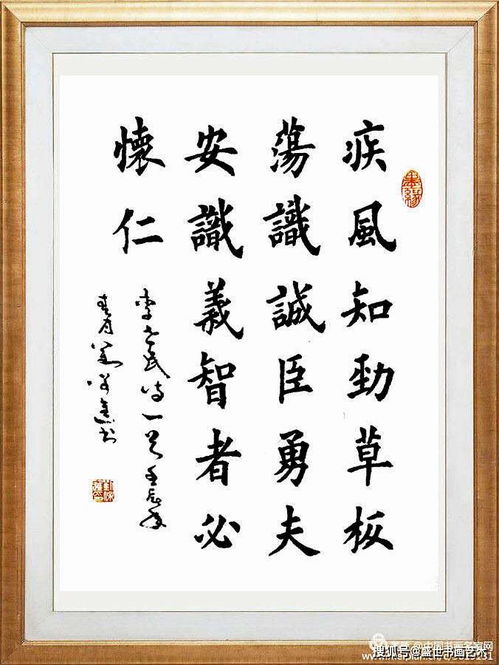 疾風知勁草板
蕩識誠臣勇夫
安識義智者必
懷仁
李世民诗一首壬辰年
春月
搜狐号@盛世书画艺术